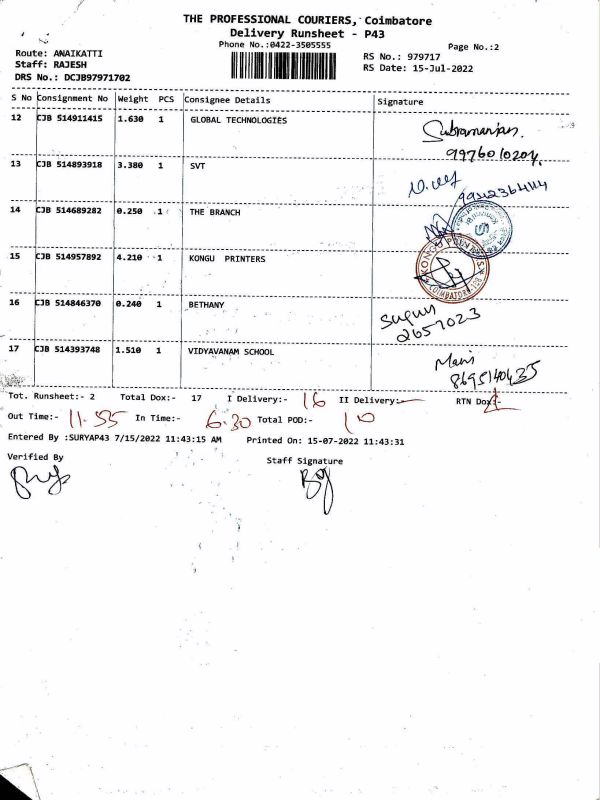 THE PROFESSIONAL COURIERS, Coimbatore
Delivery Runsheet - P43
Phone No.:0422-3505555
Page No.:2
Route: ANAIKATTI
RS No.: 979717
Staff: RAJESH
RS Date: 15-Jul-2022
DRS No.: DCJB97971702
S No Consignment No Weight PCS Consignee Details Signature
12 CJB 514911415 1.630 1 GLOBAL TECHNOLOGIES Subramanian.
9976010204.
13 CJB 514893918 3.380 1 SVT
14 CJB 514689282 0.250 1 THE BRANCH
15 CJB 514957892 4.210 1 KONGU PRINTERS
16 CJB 514846370 0.240 1 BETHANY
2657023
17 CJB 514393748 1.510 1 VIDYAVANAM SCHOOL Mani
8695140435
Tot. Runsheet:- 2 Total Dox:- 17 I Delivery:- 16 II Delivery:- RTN Dox:- 1
Out Time:- 11.55 In Time:- 6.30 Total POD:- 10
Entered By :SURYAP43 7/15/2022 11:43:15 AM Printed On: 15-07-2022 11:43:31
Verified By
Staff Signature